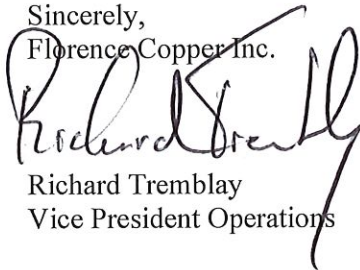 Sincerely,
Florence Copper Inc.
Richard Tremblay
Richard Tremblay
Vice President Operations